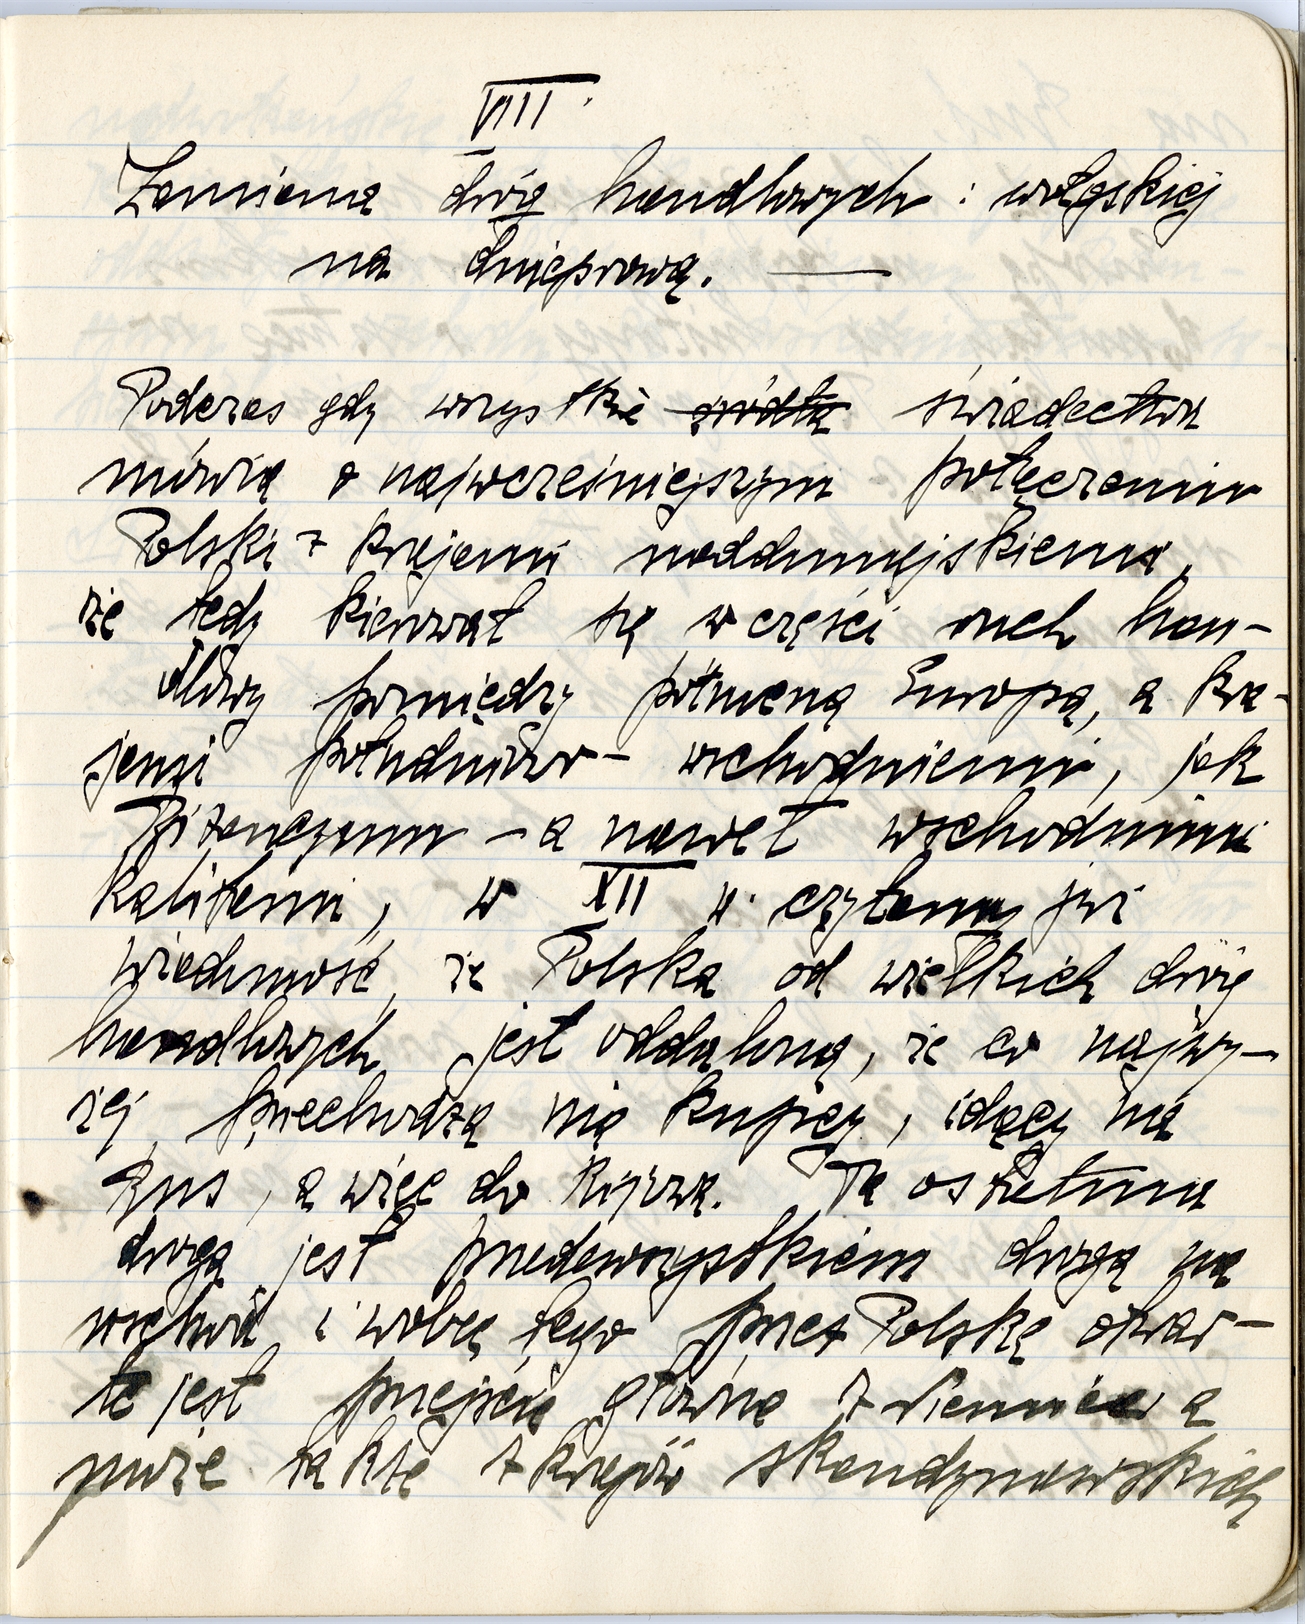 VIII.
Zamiana dróg handlowych: wołgskiej
na dnieprową. —
Podczas gdy wszystkie źródła świadectwa
mówią o najwcześniejszym połączeniu
Polski z krajami naddunajskiemi,
że tędy kierował się w części ruch han-
dlowy pomiędzy północną Europą, a kra-
jami południowo-wschodniemi, jak
Bizancyum - a nawet wschodnimi
kalifami, w XII w. czytamy już
wiadomość, że Polska od wielkich dróg
handlowych jest oddaloną, że co najwy-
żej przechodzą nią kupcy, idący na
Ruś, a więc do Kijowa. Ta ostatnia
droga jest przedewszystkiem drogą na
wschód i wobec tego przez Polskę otwar-
te jest przejście główne z Niemiec a
może także z krajów skandynawskich